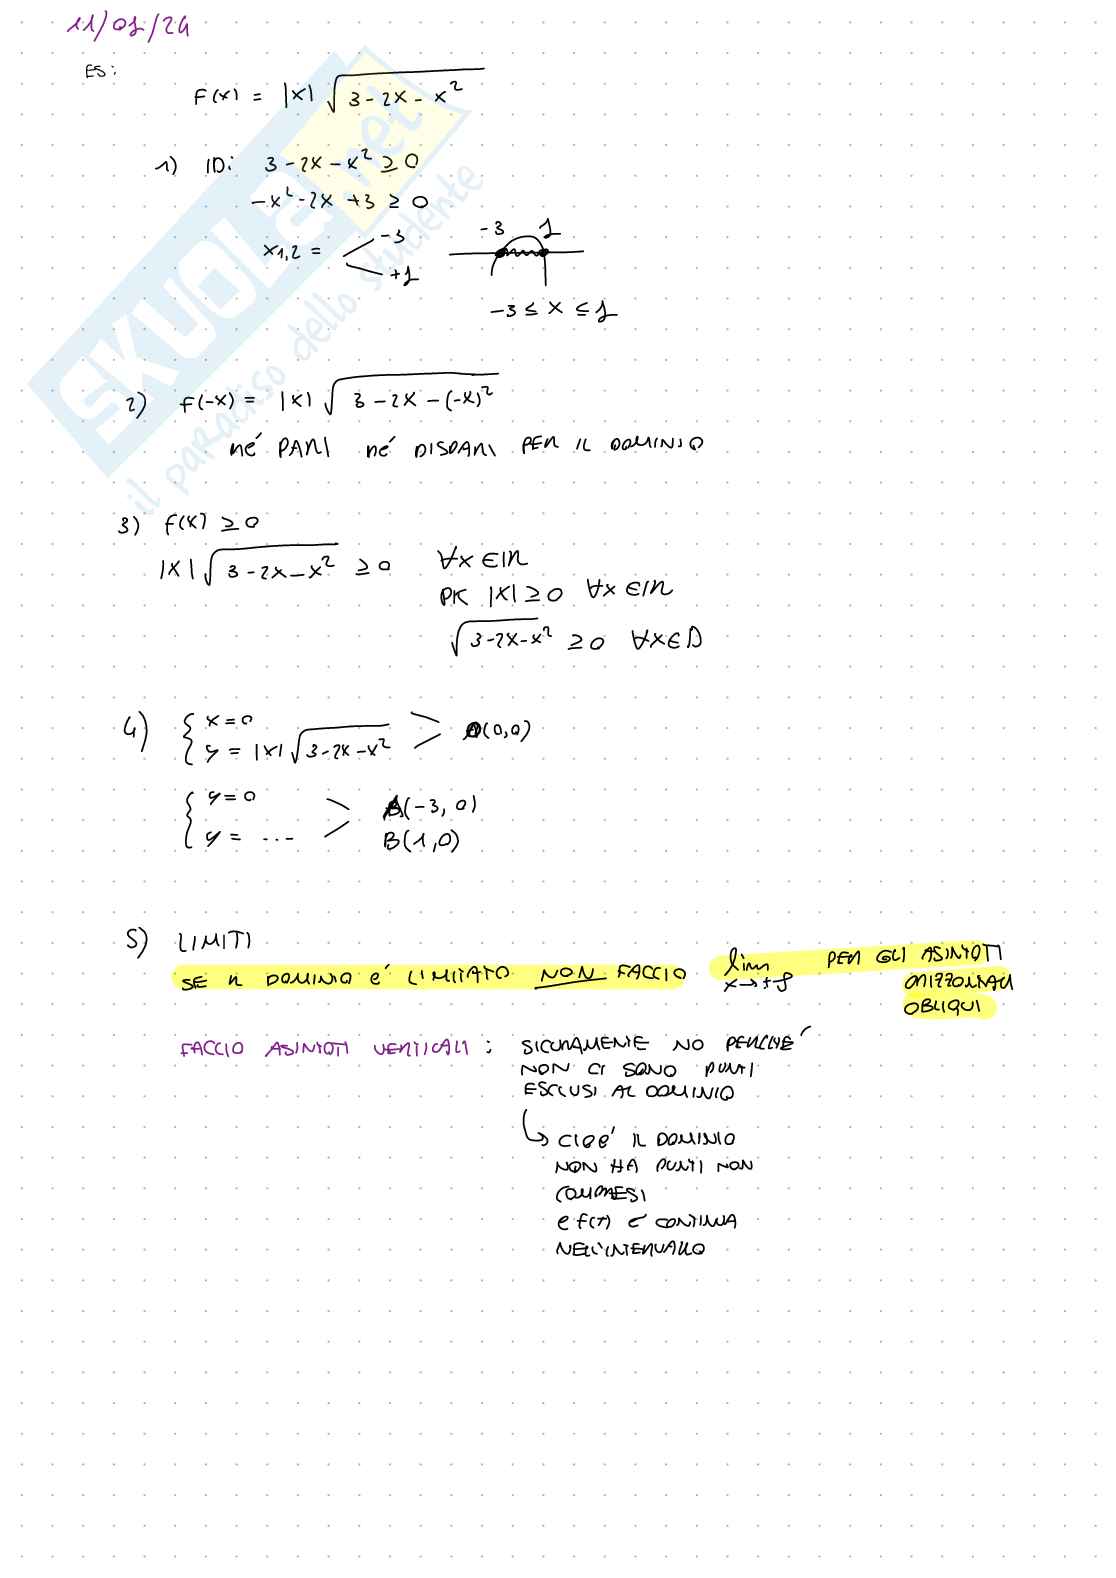 11/01/24
ES:
F(x) = |x| √(3-2x-x²)
1) ID: 3-2x-x² ≥ 0
-x²-2x+3 ≥ 0
x1,2 = -3
+1
-3 1
-3 ≤ x ≤ 1
2) f(-x) = |x| √(3-2x-(-x)²)
né PARI né DISPARI PER IL DOMINIO
3) f(x) ≥ 0
|x| √(3-2x-x²) ≥ 0 ∀x ∈ IR
PK |x| ≥ 0 ∀x ∈ IR
√(3-2x-x²) ≥ 0 ∀x ∈ D
4) { x=0
y = |x| √(3-2x-x²) > O(0,0)
{ y=0
y = ... > A(-3,0)
B(1,0)
5) LIMITI
SE IL DOMINIO e' LIMITATO NON FACCIO lim PER GLI ASINTOTI
x→+ ORIZZONTALI
OBLIQUI
FACCIO ASINTOTI VERTICALI: SICURAMENTE NO PERCHE'
NON CI SONO PUNTI
ESCLUSI AL DOMINIO
↳ CIOE' IL DOMINIO
NON HA PUNTI NON
COMPRESI
e f(x) è CONTINUA
NELL'INTERVALLO
SKUOLA.net
il paradiso dello studente